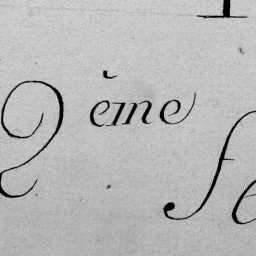 2 ĕme fe